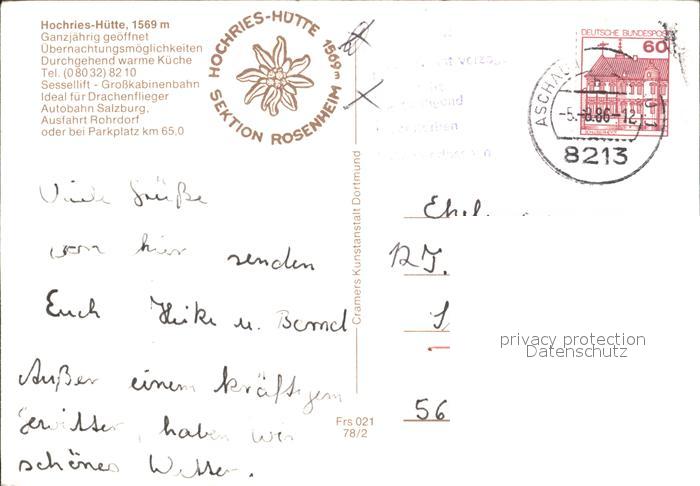 Hochries-Hütte, 1569 m
Ganzjährig geöffnet
Übernachtungsmöglichkeiten
Durchgehend warme Küche
Tel. (0 80 32) 82 10
Sessellift - Großkabinenbahn
Ideal für Drachenflieger
Autobahn Salzburg,
Ausfahrt Rohrdorf
oder bei Parkplatz km 65,0
HOCHRIES-HÜTTE 1569 m
SEKTION ROSENHEIM
DEUTSCHE BUNDESPOST
60
ASCHAU
-5.-8.86-12
8213
Viele Grüße
von hier senden
Euch Heike u. Bernd
Außer einem kräftigem
Gewitter, haben wir
schönes Wetter.
Cramers Kunstanstalt Dortmund
Frs 021
78/2
56
privacy protection
Datenschutz